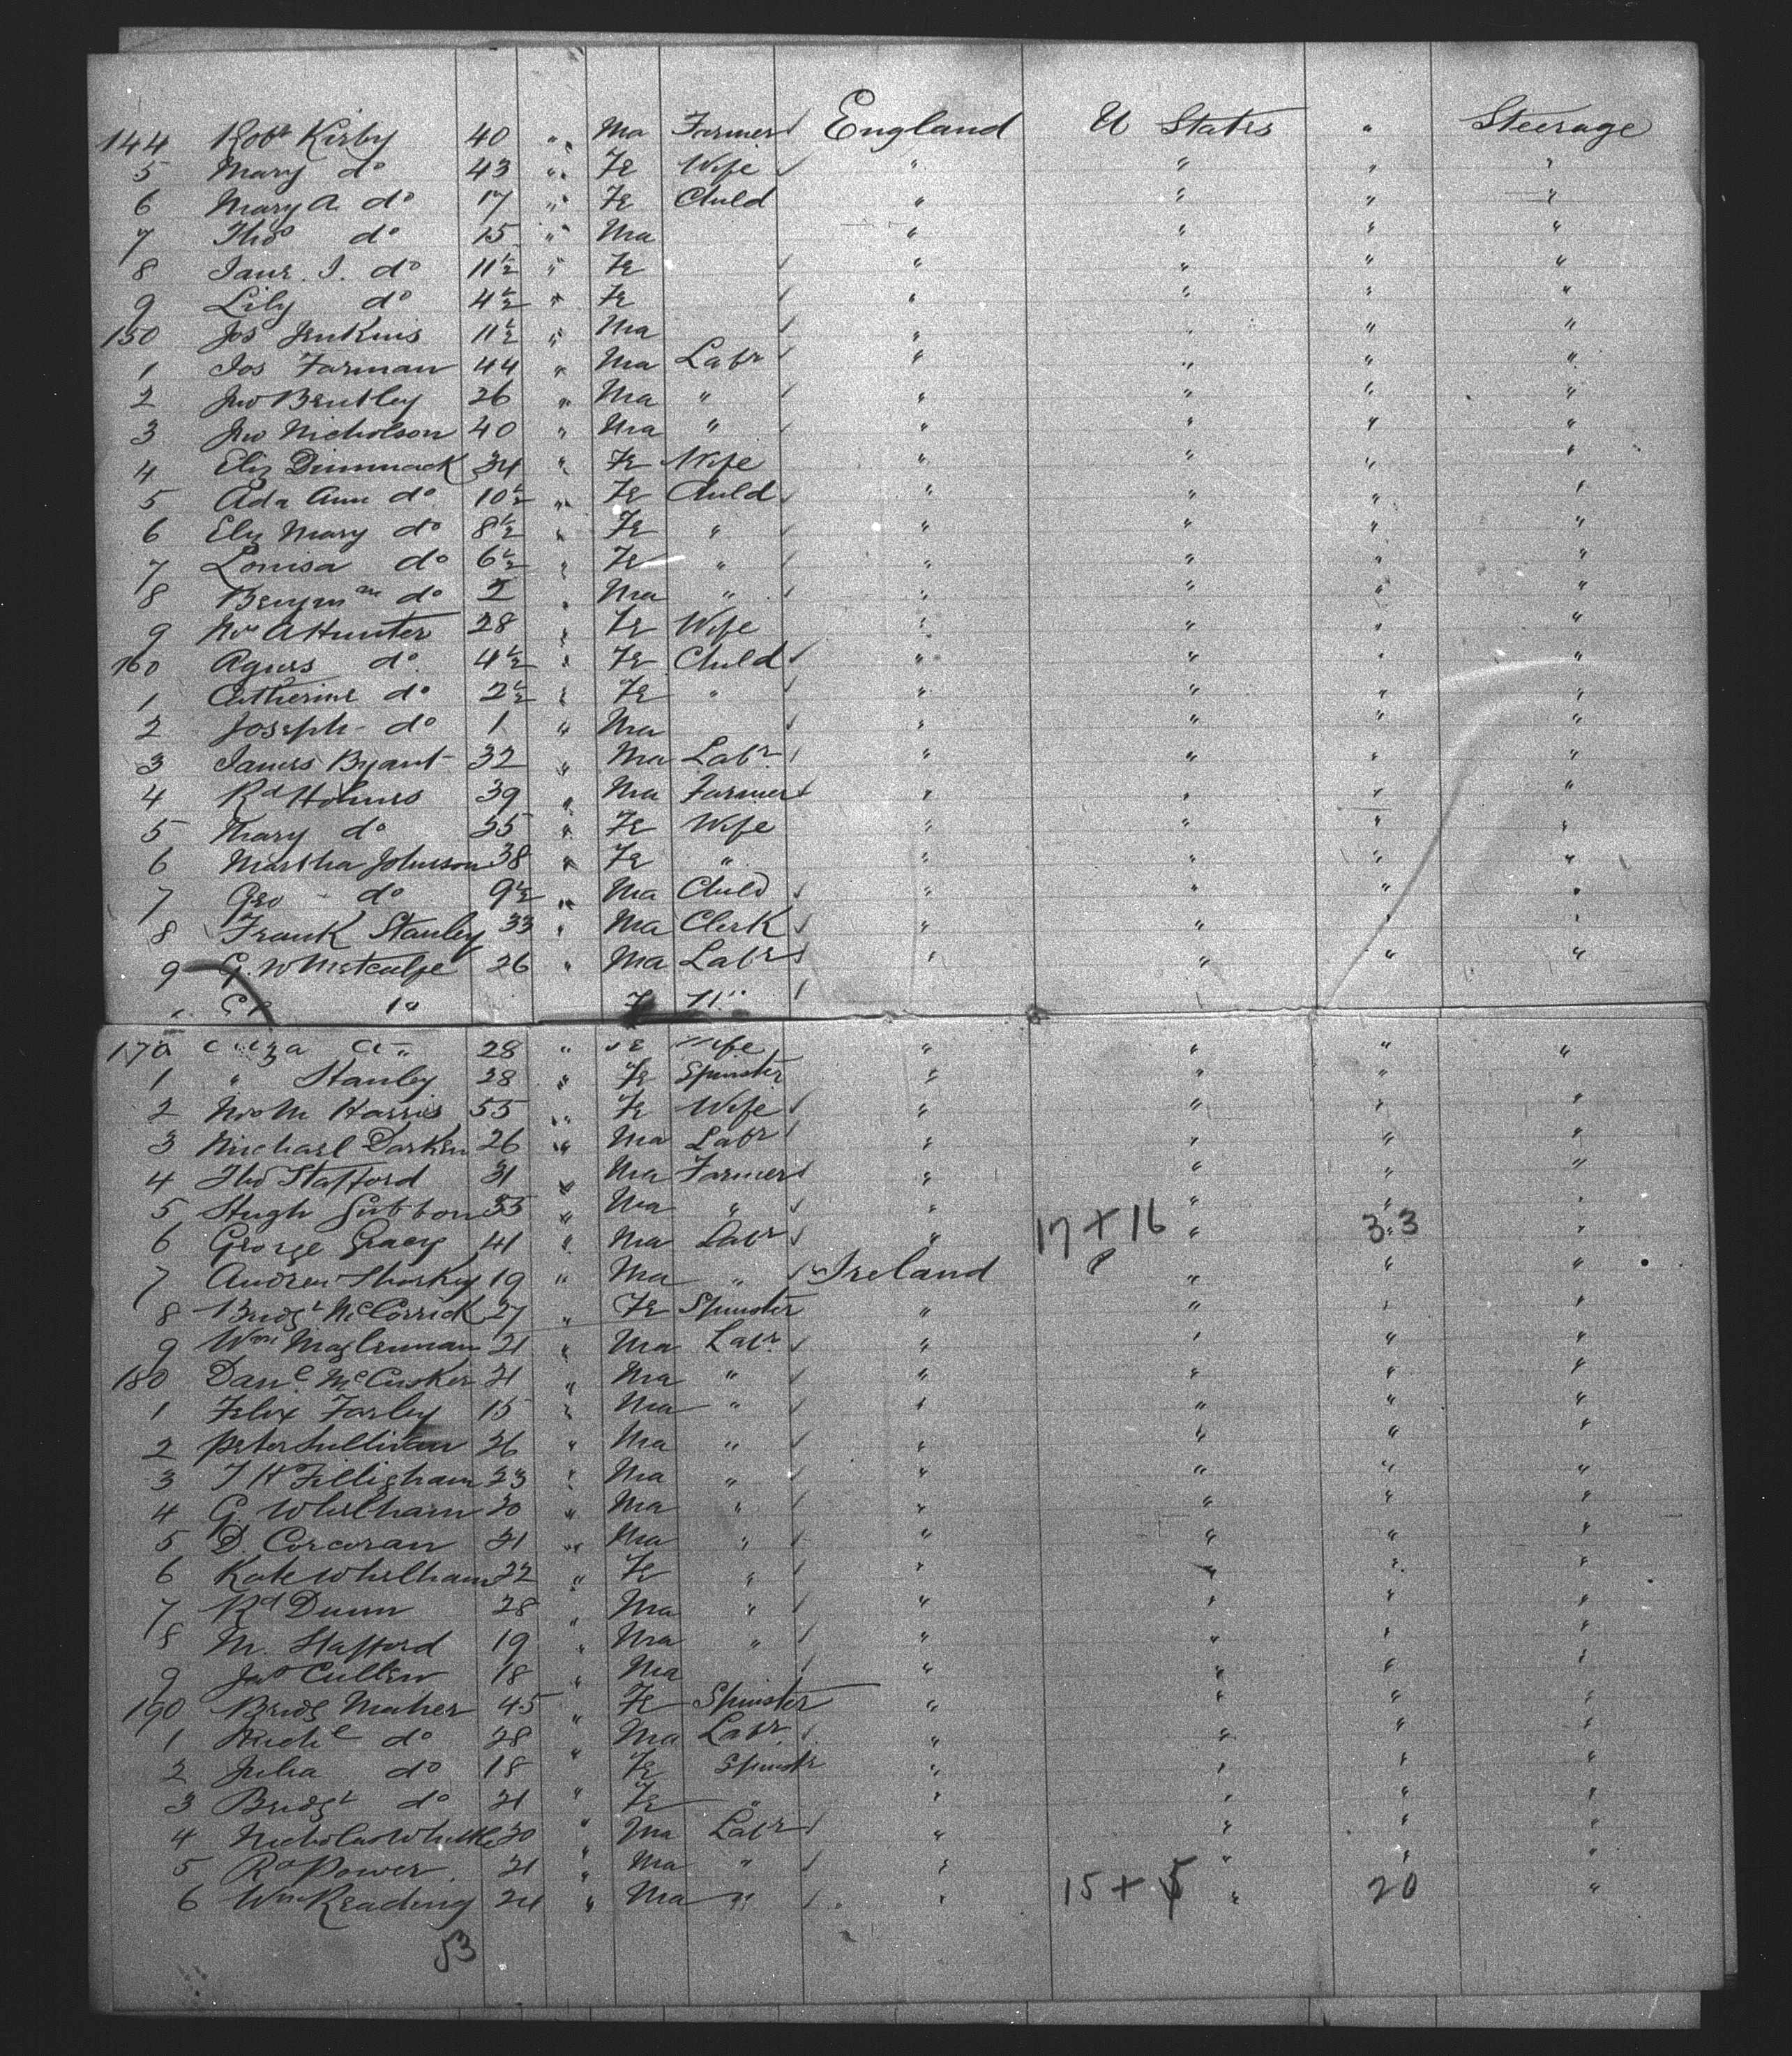 144 Robt Kirby 40 " Ma Farmer England U States " Steerage
5 Mary do 43 " Fe Wife " " " "
6 Mary A. do 17 " Fe Child " " " "
7 Thos do 15 " Ma " " " "
8 Jane J. do 11½ " Fe " " " "
9 Lily do 4½ " Fe " " " "
150 Jos Jenkins 11½ " Ma " " " "
1 Jos Farman 44 " Ma Labr " " " "
2 Jno Bentley 26 " Ma " " " " "
3 Jno Nicholson 40 " Ma " " " " "
4 Eliz Dimmack 34 " Fe Wife " " " "
5 Ada Ann do 10½ " Fe Child " " " "
6 Eliz Mary do 8½ " Fe " " " " "
7 Louisa do 6½ " Fe " " " " "
8 Benjmn do 2 " Ma " " " " "
9 Mrs A Hunter 28 " Fe Wife " " " "
160 Agnes do 4½ " Fe Child " " " "
1 Catherine do 2½ " Fe " " " " "
2 Joseph do 1 " Ma " " " "
3 James Bryant 32 " Ma Labr " " " "
4 Rd Holmes 39 " Ma Farmer " " " "
5 Mary do 35 " Fe Wife " " " "
6 Martha Johnson 38 " Fe " " " " "
7 Geo do 9½ " Ma Child " " " "
8 Frank Stanley 33 " Ma Clerk " " " "
9 G. W Metcalfe 26 " Ma Labr " " " "
170 Eliza do 28 " Fe Wife " " " "
1 " Stanley 28 " Fe Spinster " " "
2 Mrs M Harris 55 " Fe Wife " " " "
3 Michael Darken 26 " Ma Labr " " " "
4 Thos Stafford 31 " Ma Farmer " " " "
5 Hugh Gibbon 35 " Ma " " " " "
6 George Gracy 41 " Ma Labr " 17 + 16 " 33 "
7 Andrew Sharkey 19 " Ma " Ireland " " "
8 Bridgt McCorrick 27 " Fe Spinster " " " "
9 Wm 21 " Ma Labr " " " "
180 Danl McCusker 21 " Ma " " " " "
1 Felix Farley 15 " Ma " " " " "
2 Peter Sullivan 26 " Ma " " " " "
3 T H Fillingham 23 " Ma " " " " "
4 G. Whelham 20 " Ma " " " " "
5 D. Corcoran 21 " Ma " " " " "
6 Kate Whelham 22 " Fe " " " " "
7 Rd Dunn 28 " Ma " " " " "
8 M. Stafford 19 " Ma " " " " "
9 Jas Cullen 18 " Ma " " " "
190 Bridg Maher 45 " Fe Spinster " " " "
1 Michl do 28 " Ma Labr " " " "
2 Julia do 18 " Fe Spinstr " " " "
3 Bridgt do 21 " Fe " " " " "
4 Nicholas Whittle 20 " Ma Labr " " " "
5 Rd Power 21 " Ma " " " " "
6 Wm Reading 24 " Ma " " 15 + 5 " 20 "
53